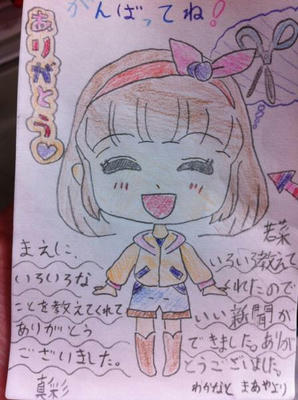 がんばってね!
ありがとう
まえに、
いろいろな
ことを教えてくれて
ありがとう
ございました。
真彩
若菜
いろいろ教えて
くれたので
いい新聞が
できました。ありが
とうございました。
わかなと まあやより